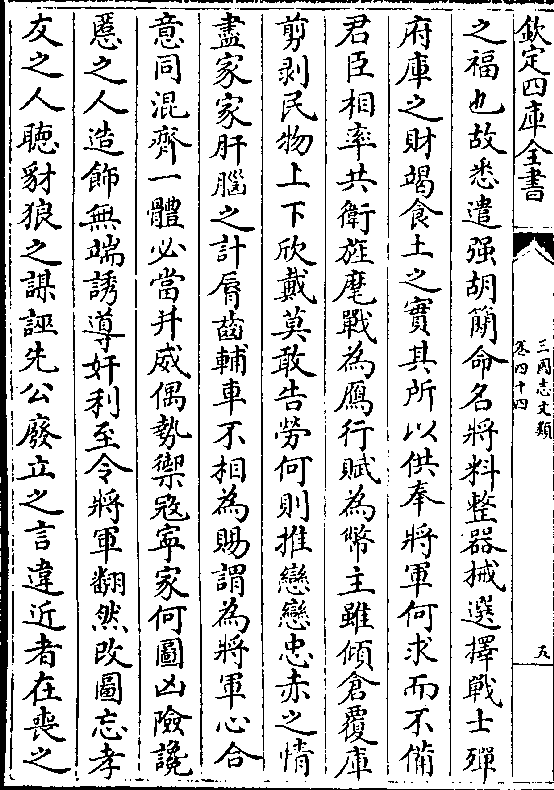 欽定四庫全書
三國志文類
卷四十四
五
之福也故悉遣强胡簡命名將料整器械選擇戰士殫
府庫之財竭食土之實其所以供奉將軍何求而不備
君臣相率共衛旌麾戰為鴈行賦為幣主雖傾倉覆庫
剪剥民物上下欣戴莫敢告勞何則推戀戀忠赤之情
盡家家肝腦之計脣齒輔車不相為賜謂為將軍心合
意同混齊一體必當并威偶勢禦寇寜家何圖凶險讒
慝之人造飾無端誘導奸利至令將軍翻然改圖忘孝
友之人聽豺狼之謀誣先公廢立之言違近者在喪之